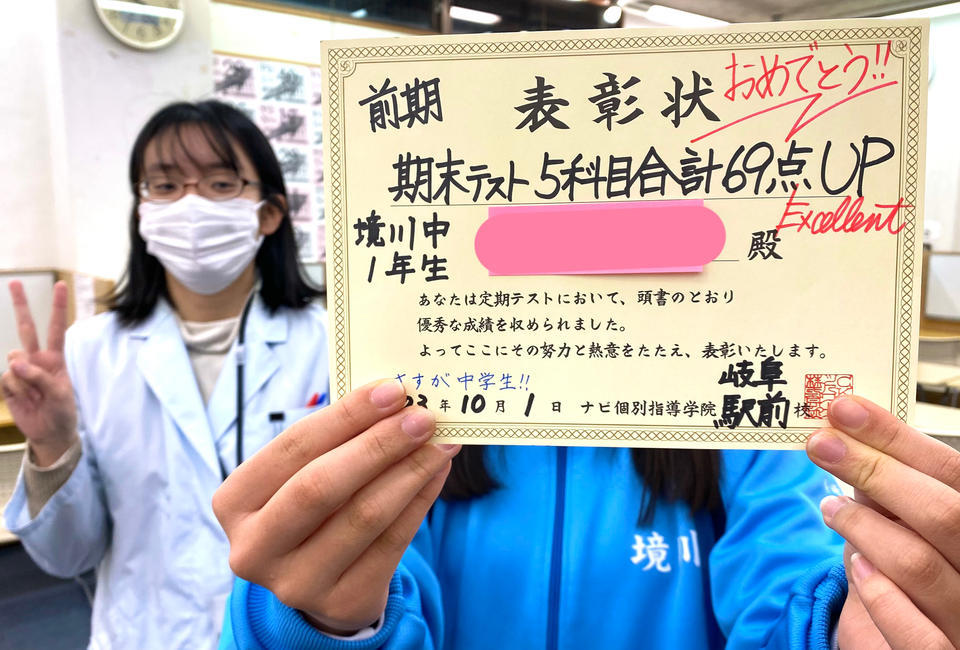 前期 表彰状 おめでとう!!
期末テスト5科目合計69点UP
Excellent
境川中
1年生
殿
あなたは定期テストにおいて、頭書のとおり
優秀な成績を収められました。
よってここにその努力と熱意をたたえ、表彰いたします。
さすが中学生!!
23年10月1日 ナビ個別指導学院 岐阜駅前校
境川